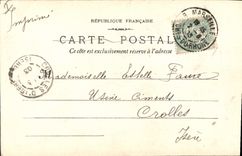 Imprimé
RÉPUBLIQUE FRANÇAISE
CARTE POSTALE
Ce côté est exclusivement réservé à l'adresse
Mademoiselle Estelle Faure
Usine Ciments
Crolles
Isère